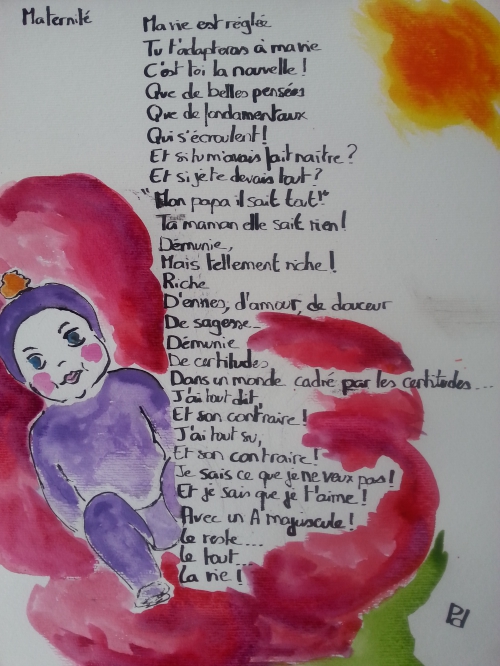 Maternité
Ma vie est réglée
Tu t'adapteras à ma vie
C'est toi la nouvelle !
Que de belles pensées
Que de fondamentaux
Qui s'écroulent !
Et si tu m'avais fait naître ?
Et si je te devais tout ?
"Mon papa il sait tout !"
Ta maman elle sait rien !
Démunie,
Mais tellement riche !
Riche
D'envies, d'amour, de douceur
De sagesse...
Démunie
De certitudes
Dans un monde cadré par les certitudes...
J'ai tout dit,
Et son contraire !
J'ai tout su,
Et son contraire !
Je sais ce que je ne veux pas !
Et je sais que je t'aime !
Avec un A majuscule !
Le reste...
Le tout...
La vie !
Pd